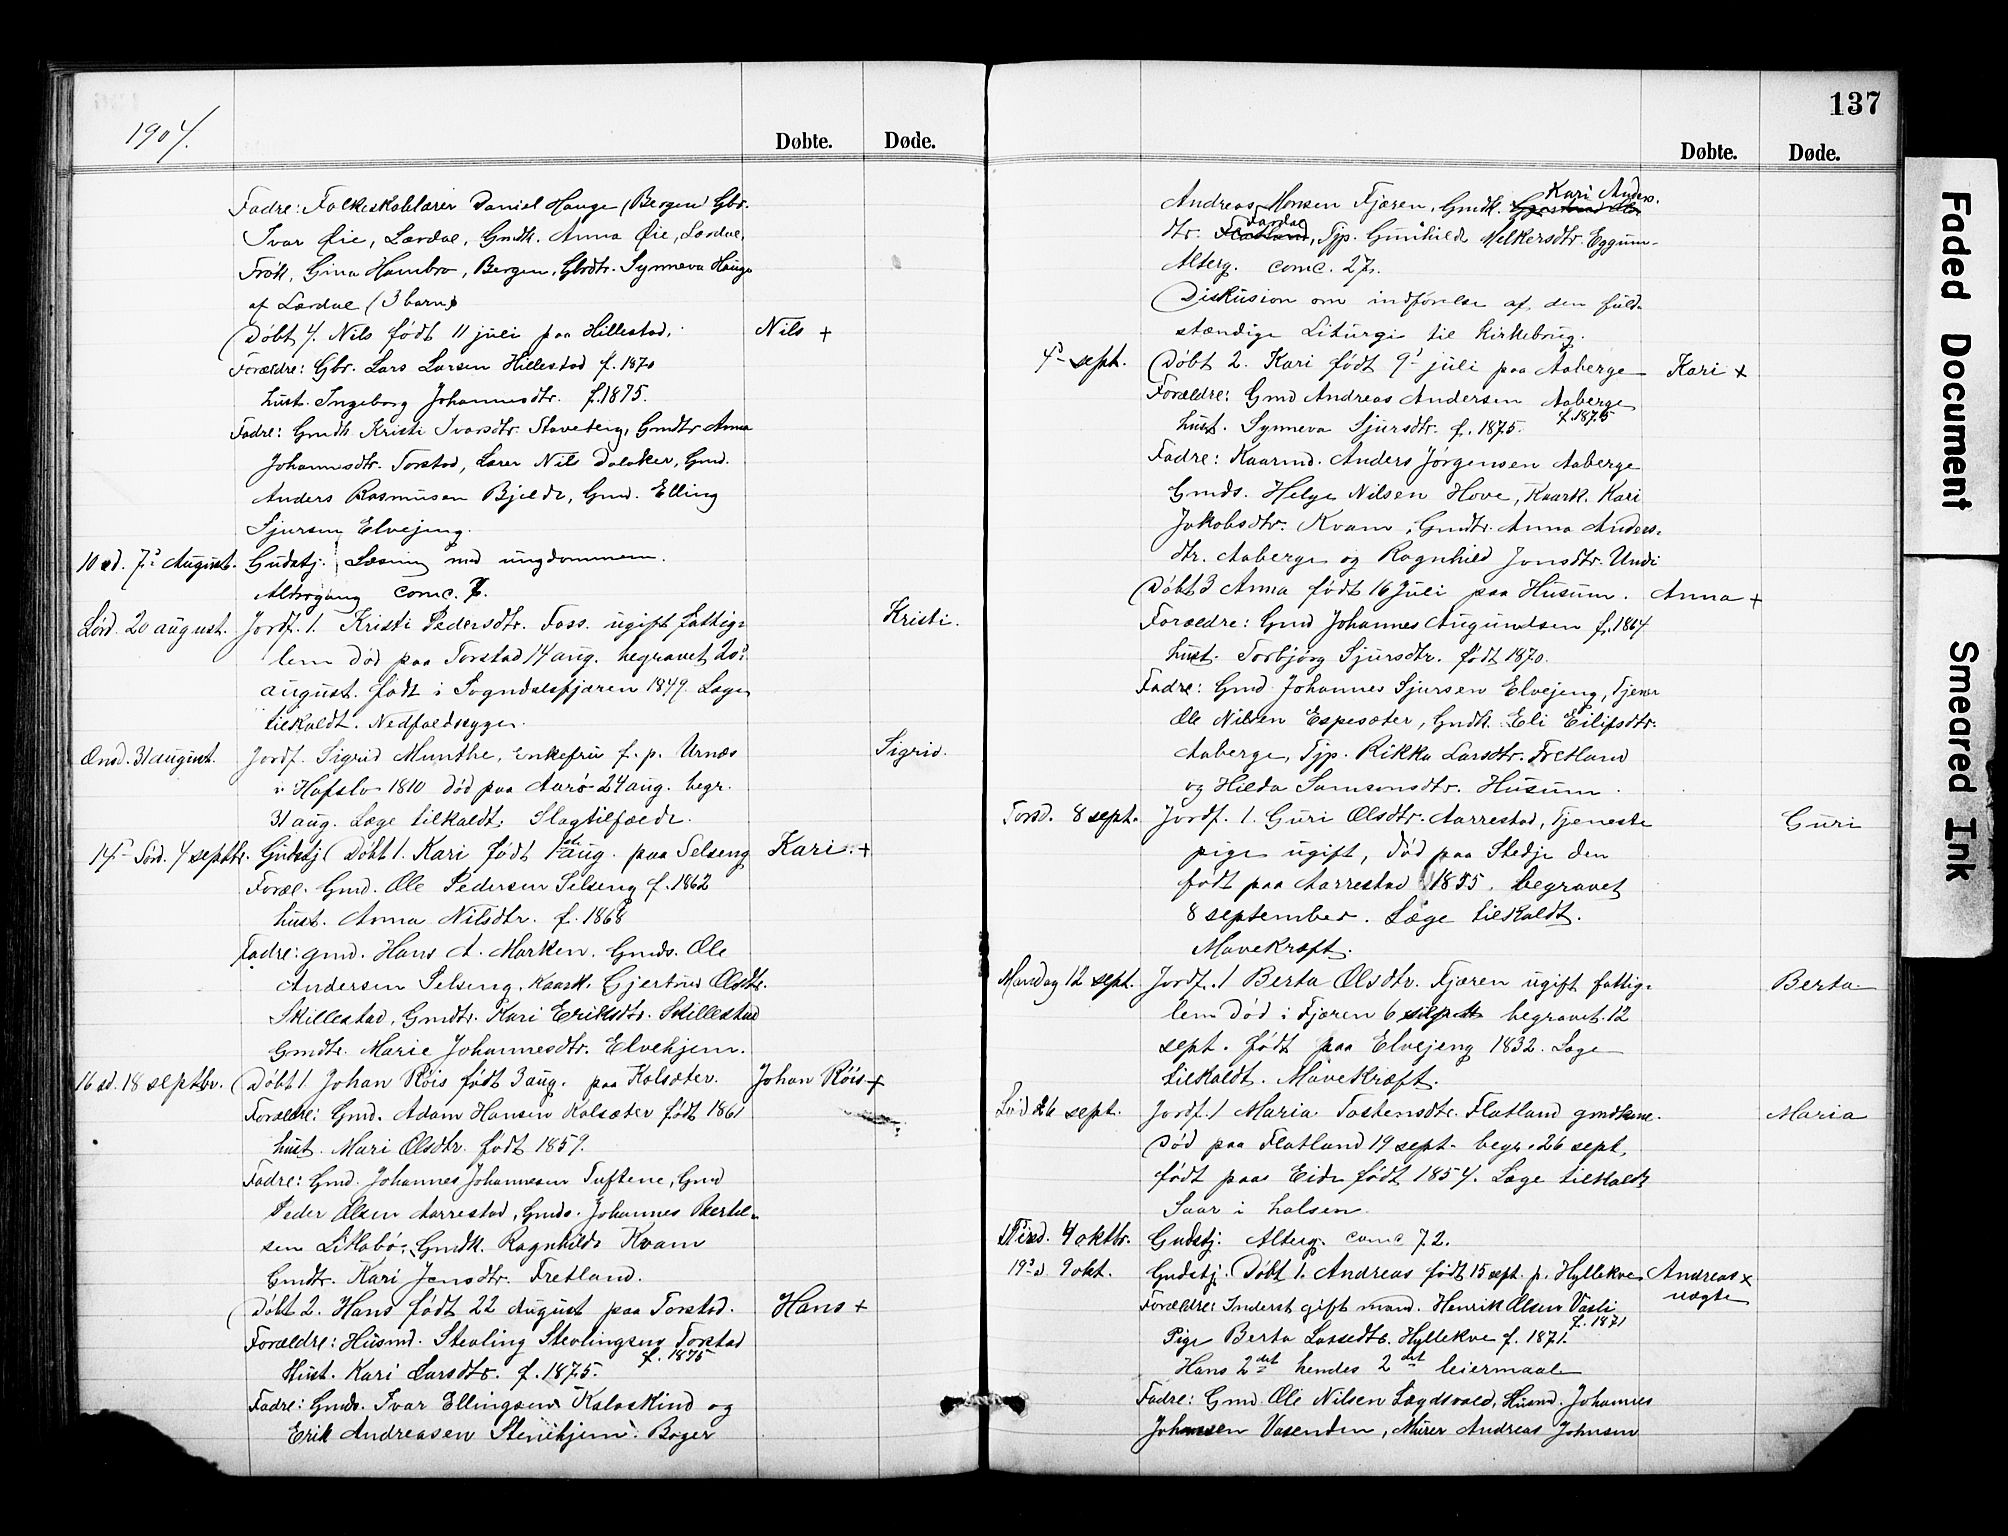 1904.
Døbte. Døde.
Fadre: Folkeskolelærer Daniel Hauge (Bergen) Gbr.
Ivar Øie, Lærdal, Gmdk. Anna Øie, Lærdal,
Frøk. Gina Hambro, Bergen, Gbrdtr. Synneva Hauge
af Lærdal (3 barn)
Døbt 4. Nils født 11 juli paa Hillestad. Nils +
Forældre: Gbr. Lars Larsen Hillestad f. 1870
hust. Ingeborg Johannesdtr. f. 1875.
Fadre: Gmdk Kristi Ivarsdtr. Staveteig, Gmdtr Anna
Johannesdtr. Torstad, Lærer Nils Dalaker, Gmd.
Anders Rasmusen Bjelde, Gmd. Elling
Sjursen Elvejeng.
10 sd. 7de August. Gudstj. Læsning med ungdommen.
Altergang comc. 7.
Lørd. 20 august. Jordf. 1. Kristi Pedersdtr. Foss. ugift fattig- Kristi.
lem død paa Torstad 14 aug. begravet 20de
august. født i Sogndalsfjæren 1849. Læge
tilkaldt. Nedfaldssyge.
Onsd. 31 august. Jordf. Sigrid Munthe, Enkefru f. p. Urnæs Sigrid.
i Hafslo 1810 død paa Aarø 24 aug. begr.
31 aug. Læge tilkaldt. Slagtilfælde.
14de Sønd. 4 septbr. Gudstj. Døbt 1. Kari født 1ste aug. paa Selseng Kari. +
Foræl. Gmd. Ole Pedersen Selseng f. 1862
hust. Anna Nilsdtr. f. 1868
Fadre: gmd. Hans A. Marken. Gmds. Ole
Andersen Selseng, Kaark. Gjertrud Olsdtr.
Skillestad, Gmdtr. Kari Eriksdtr. Skillestad
Gmdtr. Marie Johannesdtr. Elvehjem.
16 sd. 18 septbr. Døbt 1. Johan Røis født 3 aug. paa Kolsæter. Johan Røis +
Forældre: Gmd. Adam Hansen Kolsæter født 1861
hust. Mari Olsdtr. født 1859.
Fadre: Gmd. Johannes Johannesen Tuftene, Gmd
Peder Olsen Aarrestad, Gmds. Johannes Bertel-
sen Litlabø, Gmdk. Ragnhilda Kvam
Gmdtr. Kari Jensdtr. Fretland.
Døbt 2. Hans født 22 August paa Torstad. Hans +
Forældre: Husmd. Stealing Stealingsen Torstad
f. 1875
Hust. Kari Larsdtr. f. 1875.
Fadre: Gmds. Ivar Ellingsen Kalaskind og
Erik Andreasen Stenehjem. Bager
137
Døbte. Døde.
Kari Anders.
Andreas Monsen Fjæren, Gmdk.
dtr. Tjp. Gunhild Melkersdtr. Eggum.
Alterg. comc. 27.
Diskusion om indførelse af den fuld-
stændige Liturgi til kirkebrug.
4de sept. Døbt 2. Kari født 9de juli paa Aaberge Kari +
Forældre: Gmd Andreas Andersen Aaberge
f. 1875
hust. Synneva Sjursdtr. f. 1875.
Fadre: Kaarmd. Anders Jørgensen Aaberge
Gmds. Helge Nilsen Hove, Kaark. Kari
Jakobsdtr. Kvam, Gmdtr. Anna Anders-
dtr. Aaberge og Ragnhild Jonsdtr. Undi
Døbt 3 Anna født 16 Juli paa Husum. Anna +
Forældre: Gmd Johannes Augundsen f. 1864
hust. Torbjørg Sjursdtr. født 1870.
Fadre: Gmd. Johannes Sjursen Elvejeng, Tjener
Ole Nilsen Espesæter, Gmdk. Eli Eilifsdtr.
Aaberge, Tjp. Rikka Larsdtr. Fretland
og Hilda Samsonsdtr. Husum.
Torsd. 8 sept. Jordf. 1. Guri Olsdtr. Aarrestad, Tjeneste Guri
pige ugift, død paa Stedje den
født paa Aarrestad 1855. begravet
8 september. Læge tilkaldt.
Mavekræft.
Mandag 12 sept. Jordf. 1 Berta Olsdtr. Fjæren ugift fattig- Berta
lem død i Fjæren 6 sept begravet 12
sept. født paa Elvejeng 1832. Læge
tilkaldt. Mavekræft.
26 sept. Jordf. 1 Maria Tostensdtr. Flatland gmdkone. Maria
død paa Flatland 19 sept. begr. 26 sept.
født paa Eide født 1854. Læge tilkaldt
Saar i halsen.
Tirsd. 4 oktbr. Gudstj. Alterg. comc 72.
19de sd 9 okt. Gudstj. Døbt 1. Andreas født 15 sept. p. Hyllekve Andreas x
uægte
Forældre: Inderst gift mand. Henrik Olsen Vasli
f. 1871
Pige Berta Lassedtr. Hyllekve f. 1871.
Hans 2det hendes 2det leiermaal
Fadre: Gmd. Ole Nilsen Lægdsvold, Husmd. Johannes
Johnsen Vasenden, Murer Andreas Johnsen
Faded Document
Smeared Ink